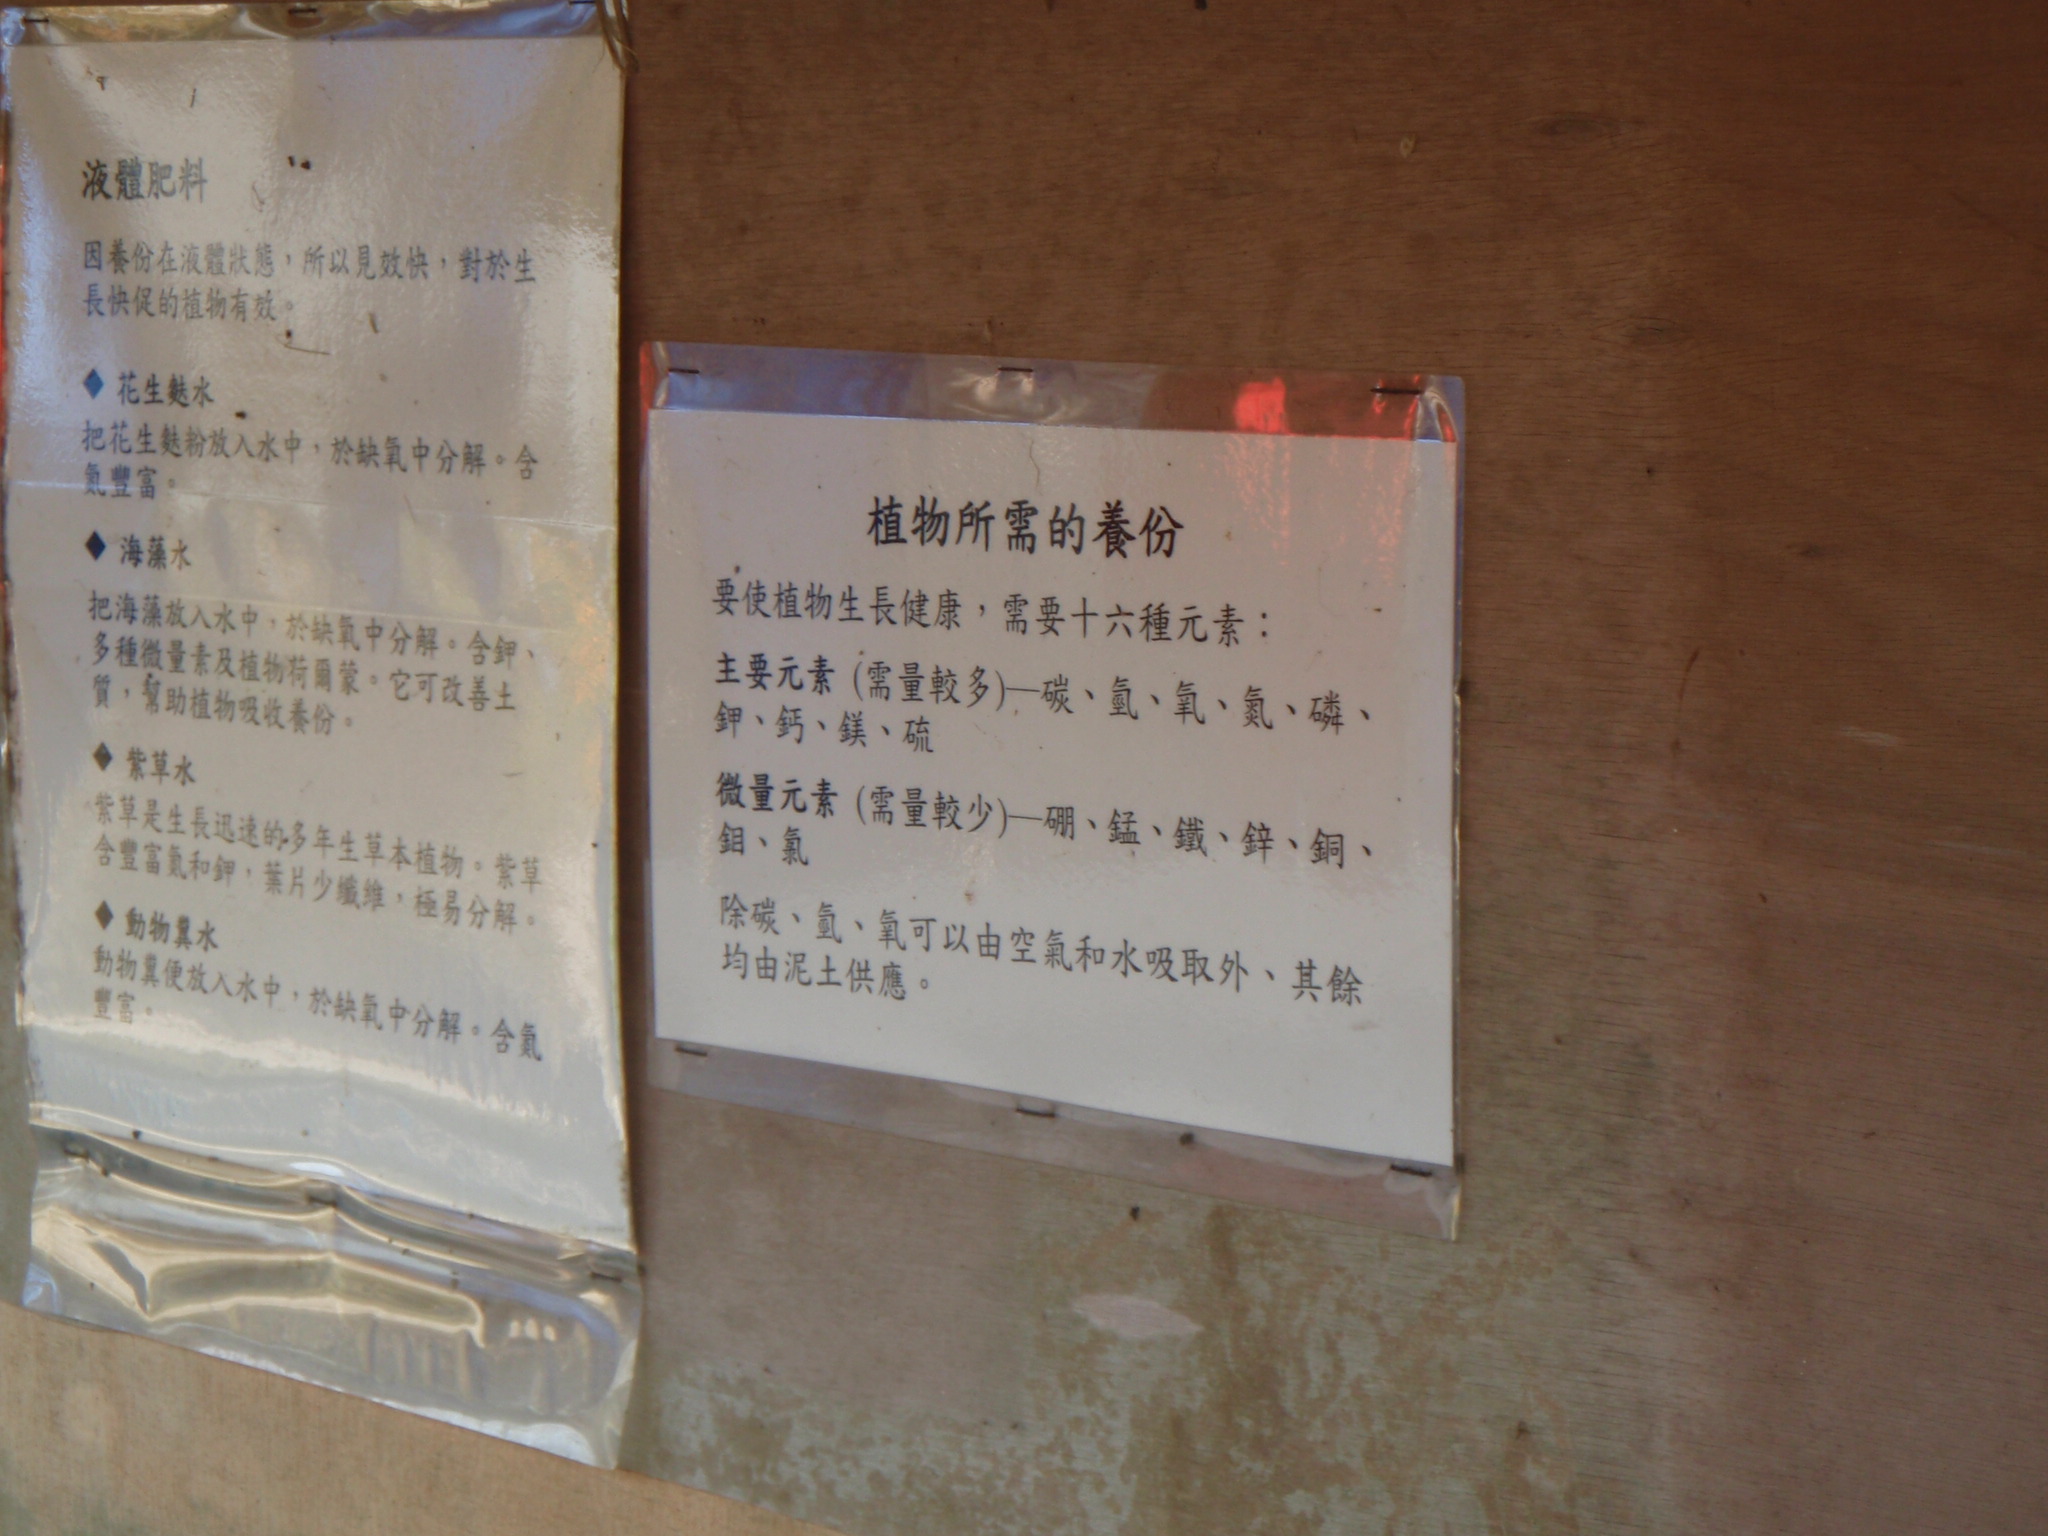 液體肥料
因養份在液體狀態，所以見效快，對於生
長快促的植物有效。
◆ 花生麩水
把花生麩粉放入水中，於缺氧中分解。含
氮豐富。
◆ 海藻水
把海藻放入水中，於缺氧中分解。含鉀、
多種微量素及植物荷爾蒙。它可改善土
質，幫助植物吸收養份。
◆ 紫草水
紫草是生長迅速的多年生草本植物。紫草
含豐富氮和鉀，葉片少纖維，極易分解。
◆ 動物糞水
動物糞便放入水中，於缺氧中分解。含氮
豐富。
植物所需的養份
要使植物生長健康，需要十六種元素：
主要元素 (需量較多)—碳、氫、氧、氮、磷、
鉀、鈣、鎂、硫
微量元素 (需量較少)—硼、錳、鐵、鋅、銅、
鉬、氯
除碳、氫、氧可以由空氣和水吸取外、其餘
均由泥土供應。